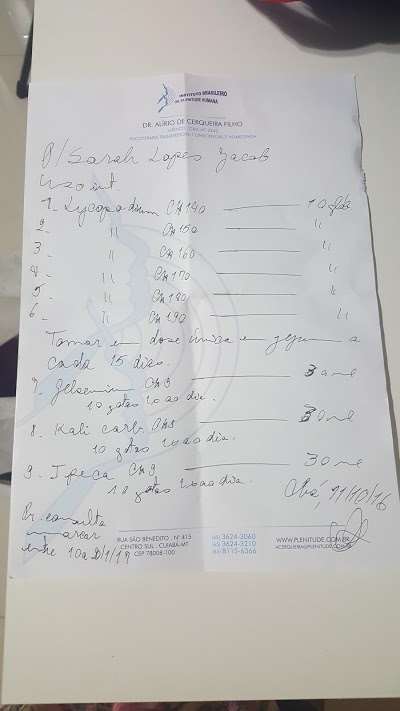 INSTITUTO BRASILEIRO
DE PLENITUDE HUMANA
DR. ALÍRIO DE CERQUEIRA FILHO
P/ Sarah Lopes Jacob
Uso int.
1- Lycopodium CH 140 10 glob
2- " CH 150 "
3- " CH 160 "
4- " CH 170 "
5- " CH 180 "
6- " CH 190 "
Tomar em dose única em jejum a
cada 15 dias.
7- Gelsemium CH 9 30 ml
10 gotas ao dia.
8. Kali carb 30 ml
10 gotas ao dia.
9. Ipeca CH 9 30 ml
10 gotas ao dia.
Cbá, 11/10/16
consulta
marcar
entre 10 a
RUA SÃO BENEDITO , Nº 415
CENTRO SUL . CUIABÁ-MT
CEP 78008-100
(65) 3624-3060
(65) 3624-3210
(65) 8115-6366
WWW.PLENITUDE.COM.BR
ACERQUEIRA@PLENITUDE.COM.BR